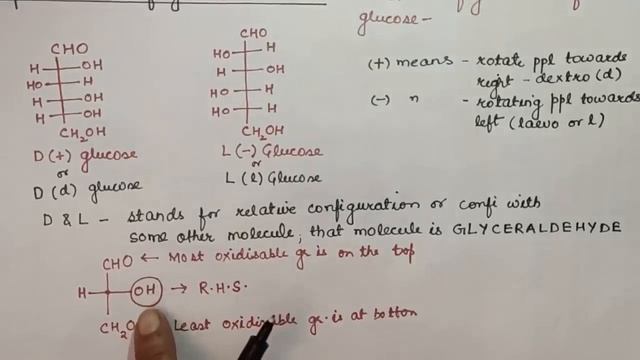 glucose-
CHO
H OH
HO H
H OH
H OH
CH2OH
D (+) glucose
or
D (d) glucose
CHO
HO H
H OH
HO H
HO H
CH2OH
L (-) Glucose
or
L (l) Glucose
(+) means - rotate ppl towards
right - dextro (d)
(-) " - rotating ppl towards
left (laevo or l)
D & L - stands for relative configuration or confi with
some other molecule, that molecule is GLYCERALDEHYDE
CHO ← Most oxidisable gr is on the top
H OH → R.H.S.
CH2O Least oxidisable gr. is at botton